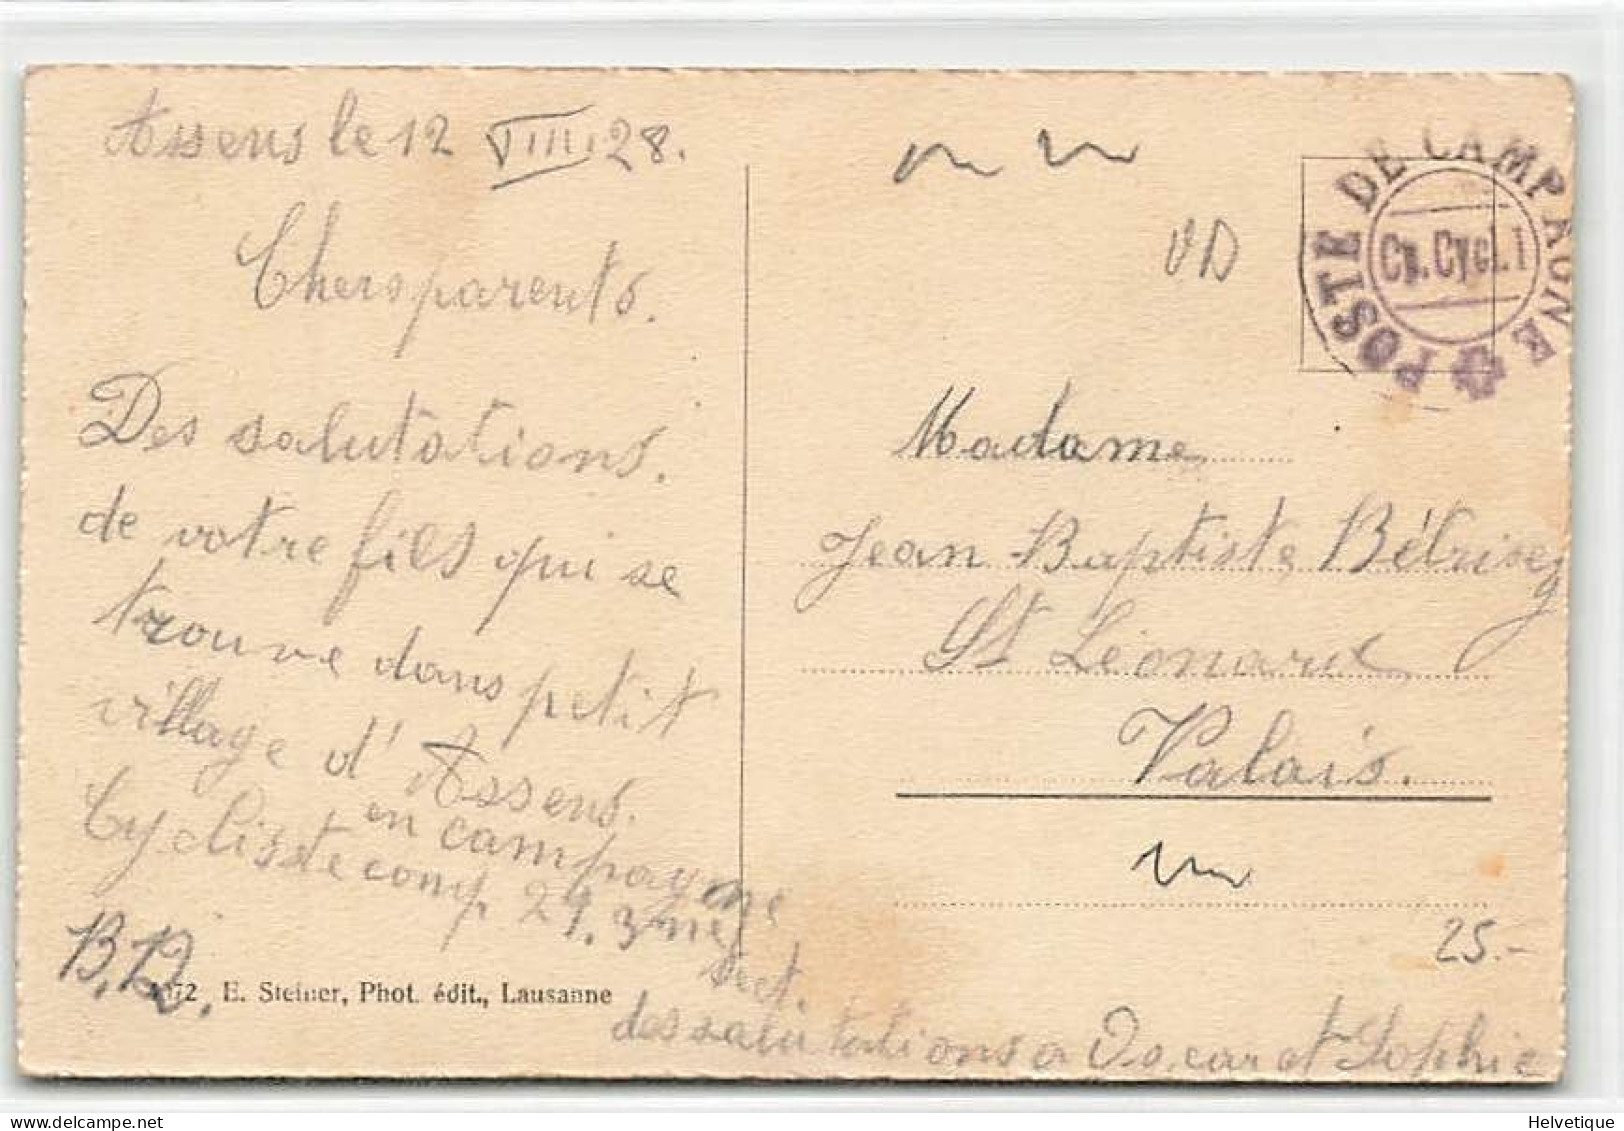 Assens le 12 VIII. 28.
Chers parents.
Des salutations.
de votre fils qui se
trouve dans petit
village d'Assens.
en campagne
Cycliste comp. 21. 3me
sect.
B.B.
des salutations a Oscar et Sophie
E. Steiner, Phot. édit., Lausanne
POSTE DE CAMPAGNE
Cp. Cycl. 1
VD
Madame
Jean-Baptiste Bétrisey
St Léonard
Valais.
25.-
Helvetique